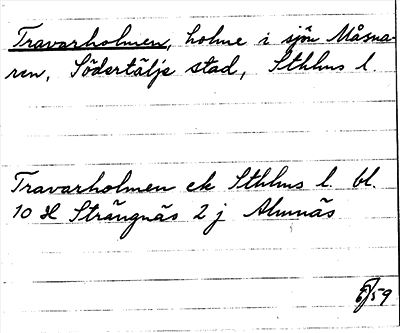 Travarholmen, holme i sjön Måsna-
ren, Södertälje stad, Sthlms l.
Travarholmen ek Sthlms l. bl.
10 H Strängnäs 2 j Almnäs